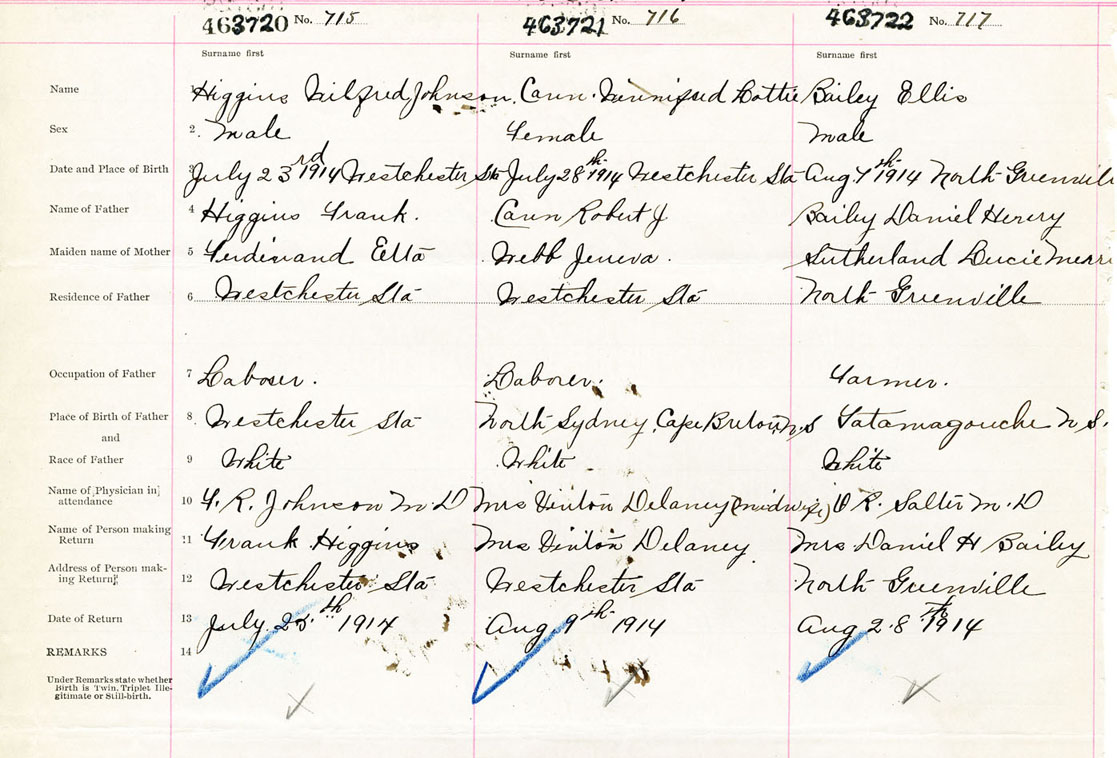 463720 No. 715 463721 No. 716 463722 No. 717
Surname first Surname first Surname first
Name 1 Higgins Wilfred Johnson. Cann. Winnifred Lottie Bailey Ellis
Sex 2. male Female male
Date and Place of Birth 3 July 23rd 1914 Westchester Sta July 28th 1914 Westchester Sta Aug 7th 1914 North Greenvill
Name of Father 4 Higgins Frank. Cann Robert J Bailey Daniel Henry
Maiden name of Mother 5 Ferdinand Etta Webb Jeneva. Sutherland Lucie
Residence of Father 6 Westchester Sta Westchester Sta North Greenville
Occupation of Father 7 Laborer. Laborer. Farmer.
Place of Birth of Father 8 Westchester Sta North Sydney, Cape Breton N.S Tatamagouche N.S.
and
Race of Father 9 White White White
Name of Physician in
attendance 10 F. R. Johnson M.D Mrs Hinton Delaney (midwife) R. Salter M.D
Name of Person making
Return 11 Frank Higgins Mrs Hinton Delaney Mrs Daniel H Bailey
Address of Person mak-
ing Return 12 Westchester Sta Westchester Sta North Greenville
Date of Return 13 July 25th 1914 Aug 9th 1914 Aug 28th 1914
REMARKS 14
Under Remarks state whether
Birth is Twin, Triplet Ille-
gitimate or Still-birth.